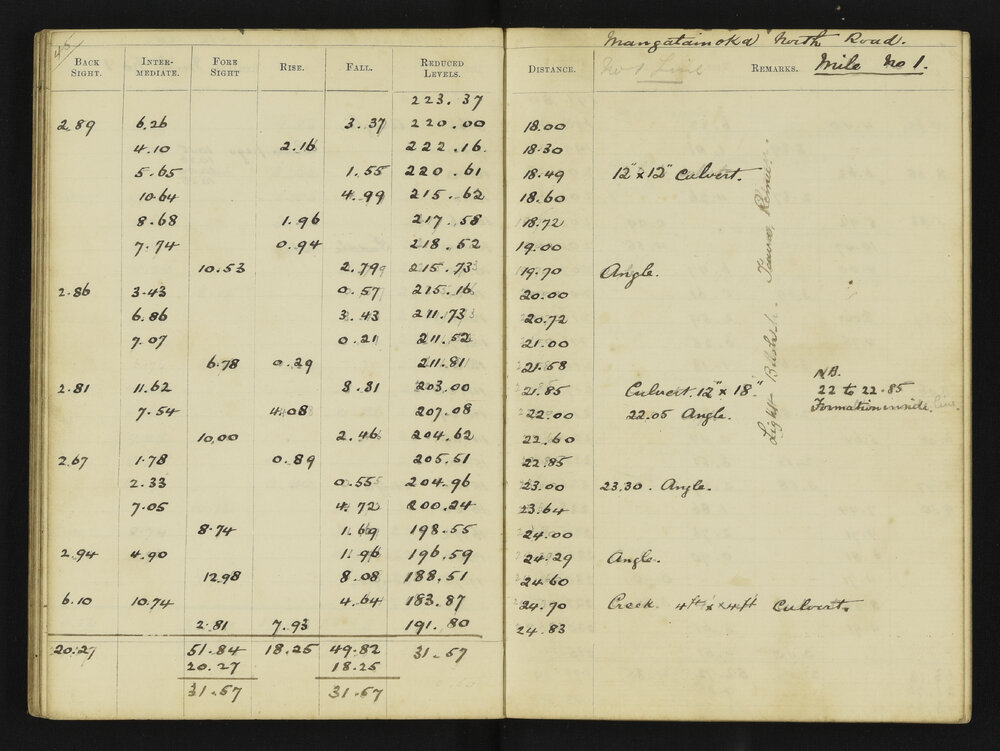 45
Mangatainoka North Road.
BACK SIGHT. INTER-MEDIATE. FORE SIGHT RISE. FALL. REDUCED LEVELS. DISTANCE. No 1 Line REMARKS. Mile No 1.
223.37
2.89 6.26 3.37 220.00 18.00
4.10 2.16 222.16. 18.30
5.65 1.55 220.61 18.49 12"x12" Culvert.
10.64 4.99 215.62 18.60
8.68 1.96 217.58 18.72
7.74 0.94 218.52 19.00
10.53 2.79 215.73 19.70 Angle.
2.86 3.43 0.57 215.16 20.00
6.86 3.43 211.73 20.72
7.07 0.21 211.52 21.00
6.78 0.29 211.81 21.58
NB.
2.81 11.62 8.81 203.00 21.85 Culvert. 12" x 18" 22 to 22.85
7.54 4.08 207.08 22.00 22.05 Angle. Formation inside line.
10.00 2.46 204.62 22.60
2.67 1.78 0.89 205.51 22.85
2.33 0.55 204.96 23.00 23.30. Angle.
7.05 4.72 200.24 23.64
8.74 1.69 198.55 24.00
2.94 4.90 1.96 196.59 24.29 Angle.
12.98 8.08 188.51 24.60
6.10 10.74 4.64 183.87 24.70 Creek. 4ft x 4ft Culvert.
2.81 7.93 191.80 24.83
20.27 51.84 18.25 49.82 31.57
20.27 18.25
31.57 31.57
Light